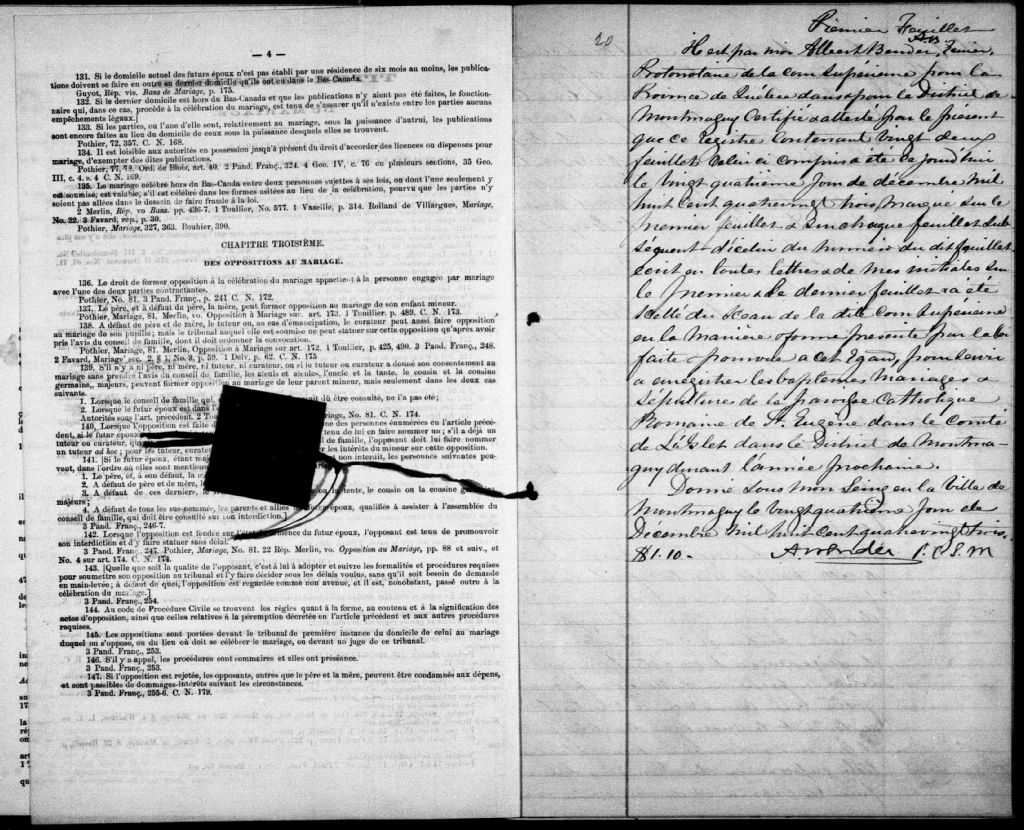 — 4 —
131. Si le domicile actuel des futurs époux n'est pas établi par une résidence de six mois au moins, les publications doivent se faire en outre au dernier domicile qu'ils ont eu dans le Bas-Canada.
Guyot, Rép. vis. Bans de Mariage, p. 175.
132. Si le dernier domicile est hors du Bas-Canada et que les publications n'y aient pas été faites, le fonctionnaire qui, dans ce cas, procède à la célébration du mariage, est tenu de s'assurer qu'il n'existe entre les parties aucuns
empêchements légaux.]
133. Si les parties, ou l'une d'elle sont, relativement au mariage, sous la puissance d'autrui, les publications
sont encore faites au lieu du domicile de ceux sous la puissance desquels elles se trouvent.
Pothier, 72, 357. C. N. 168.
134. Il est loisible aux autorités en possession jusqu'à présent du droit d'accorder des licences ou dispenses pour
mariage, d'exempter des dites publications.
Pothier, 77, 78. Ord. de Blois, art. 40. 2 Pand. Franç., 324. 4 Geo. IV, c. 76 en plusieurs sections, 35 Geo.
III, c. 4. s. 4 C. N. 169.
135. Le mariage célébré hors du Bas-Canada entre deux personnes sujettes à ses lois, ou dont l'une seulement y
est soumise, est valable, s'il est célébré dans les formes usitées au lieu de la célébration, pourvu que les parties n'y
soient pas allées dans le dessein de faire fraude à la loi.
2 Merlin, Rép, vo Bans. pp. 436-7. 1 Toullier, No. 577. 1 Vazeille, p. 314. Rolland de Villargues, Mariage,
No. 22. 3 Favard, rép., p. 30.
Pothier, Mariage, 327, 363. Bouhier, 390.
CHAPITRE TROISIÈME.
DES OPPOSITIONS AU MARIAGE.
136. Le droit de former opposition à la célébration du mariage appartient à la personne engagée par mariage
avec l'une des deux parties contractantes.
Pothier, No. 81. 3 Pand. Franç., p. 241 C. N. 172.
137. Le père, et à défaut du père, la mère, peut former opposition au mariage de son enfant mineur.
Pothier, Mariage, 81, Merlin, vo. Opposition à Mariage sur art. 173. 1 Toullier. p. 489. C. N. 173.
138. A défaut de père et de mère, le tuteur ou, au cas d'émancipation, le curateur peut aussi faire opposition
au mariage de son pupille; mais le tribunal auquel elle est soumise ne peut statuer sur cette opposition qu'après avoir
pris l'avis du conseil de famille, dont il doit ordonner la convocation.
Pothier, Mariage, 81. Merlin, Opposition à Mariage sur art. 172. 1 Toullier, p. 425, 490. 3 Pand. Franç., 248.
2 Favard, Mariage sec. 2, § 1, No. 3, p. 59. 1 Delv. p. 62. C. N. 175
139. S'il n'y a ni père, ni mère, ni tuteur, ni curateur, ou si le tuteur ou curateur a donné son consentement au
mariage sans prendre l'avis du conseil de famille, les aïeuls et aïeules, l'oncle et la tante, le cousin et la cousine
germains, majeurs, peuvent former opposition au mariage de leur parent mineur, mais seulement dans les deux cas
suivants.
1. Lorsque le conseil de famille qui, dû être consulté, ne l'a pas été;
2. Lorsque le futur époux est dans
Autorités sous l'art. précédent. 2 riage, No. 81. C. N. 174.
140. Lorsque l'opposition est faite une des personnes énumérées en l'article précédent, si le futur époux tenu de lui en faire nommer un; s'il a déjà un
tuteur ou curateur, de famille, l'opposant doit lui faire nommer
un tuteur ad hoc; pour les tuteur, curateur les intérêts du mineur sur cette opposition.
141. [Si le futur époux, étant non interdit, les personnes suivantes peuvent, dans l'ordre où elles sont mention
1. Le père, et, à son défaut, la
2. A défaut de père et de mère,
3. A défaut de ces derniers, la tante, le cousin ou la cousine
majeurs;
4. A défaut de tous les sus-nommés, les parents et alliés époux, qualifiés à assister à l'assemblée du
conseil de famille, qui doit être consulté sur son interdiction.]
3 Pand. Franç., 246-7.
142. Lorsque l'opposition est fondée sur du futur époux, l'opposant est tenu de promouvoir
son interdiction et d'y faire statuer sans délai.
3 Pand. Franç., 247. Pothier, Mariage, No. 81. 22 Rép. Merlin, vo. Opposition au Mariage, pp. 88 et suiv., et
No. 4 sur art. 174. C. N. 174.
143. [Quelque soit la qualité de l'opposant, c'est à lui à adopter et suivre les formalités et procédures requises
pour soumettre son opposition au tribunal et l'y faire décider sous les délais voulus, sans qu'il soit besoin de demande
en main-levée; à défaut de quoi, l'opposition est regardée comme non avenue, et il est, nonobstant, passé outre à la
célébration du mariage.]
3 Pand. Franç., 254.
144. Au code de Procédure Civile se trouvent les règles quant à la forme, au contenu et à la signification des
actes d'opposition, ainsi que celles relatives à la péremption décrétée en l'article précédent et aux autres procédures
requises.
145. Les oppositions sont portées devant le tribunal de première instance du domicile de celui au mariage
duquel on s'oppose, ou du lieu où doit se célébrer le mariage, ou devant un juge de ce tribunal.
3 Pand. Franç., 253.
146. S'il y a appel, les procédures sont sommaires et elles ont préséance.
3 Pand. Franç., 253.
147. Si l'opposition est rejetée, les opposants, autres que le père et la mère, peuvent être condamnés aux dépens,
et sont passibles de dommages-intérêts suivant les circonstances.
3 Pand. Franç., 255-6. C. N. 179.
20
Premier Feuillet
AB
Il est par moi Albert Bender, Ecuier,
Protonotaire de la cour supérieure pour la
Province de Québec dans & pour le District de
Montmagny Certifié & attesté par le présent
que ce registre contenant vingt deux
feuillets celui ci compris a été ce jourd'hui
le vingt quatrième jour de décembre mil
huit cent quatrevingt trois marqué sur le
premier feuillet & sur chaque feuillet subséquent d'icelui du numéro du dit feuillet
écrit en toutes lettres & de mes initiales sur
le premier & le dernier feuillet & a été
scellé du sceau de la dite cour supérieure
en la manière & forme prescrite par la loi
faite & pourvue a cet égard, pour servir
a enregistrer les baptêmes mariages &
sépultures de la paroisse Catholique
Romaine de St. Eugène dans le Comté
de L'Islet dans le District de Montmagny durant l'année prochaine.
Donné sous mon seing en la Ville de
Montmagny le vingt quatrième jour de
Décembre mil huit cent quatrevingt trois.
$1.10- A Bender P.C.S.M